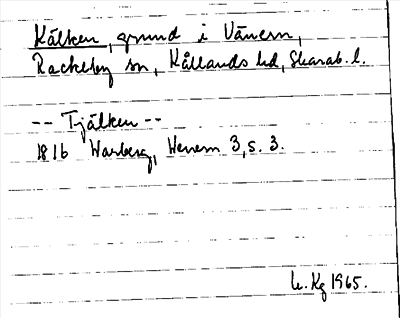 Kälken, grund i Vänern,
Rackeby sn, Kållands hd, Skarab. l.
-- Tjälken --
1816 Warberg, Wenern 3, s. 3.
Kg 1965.